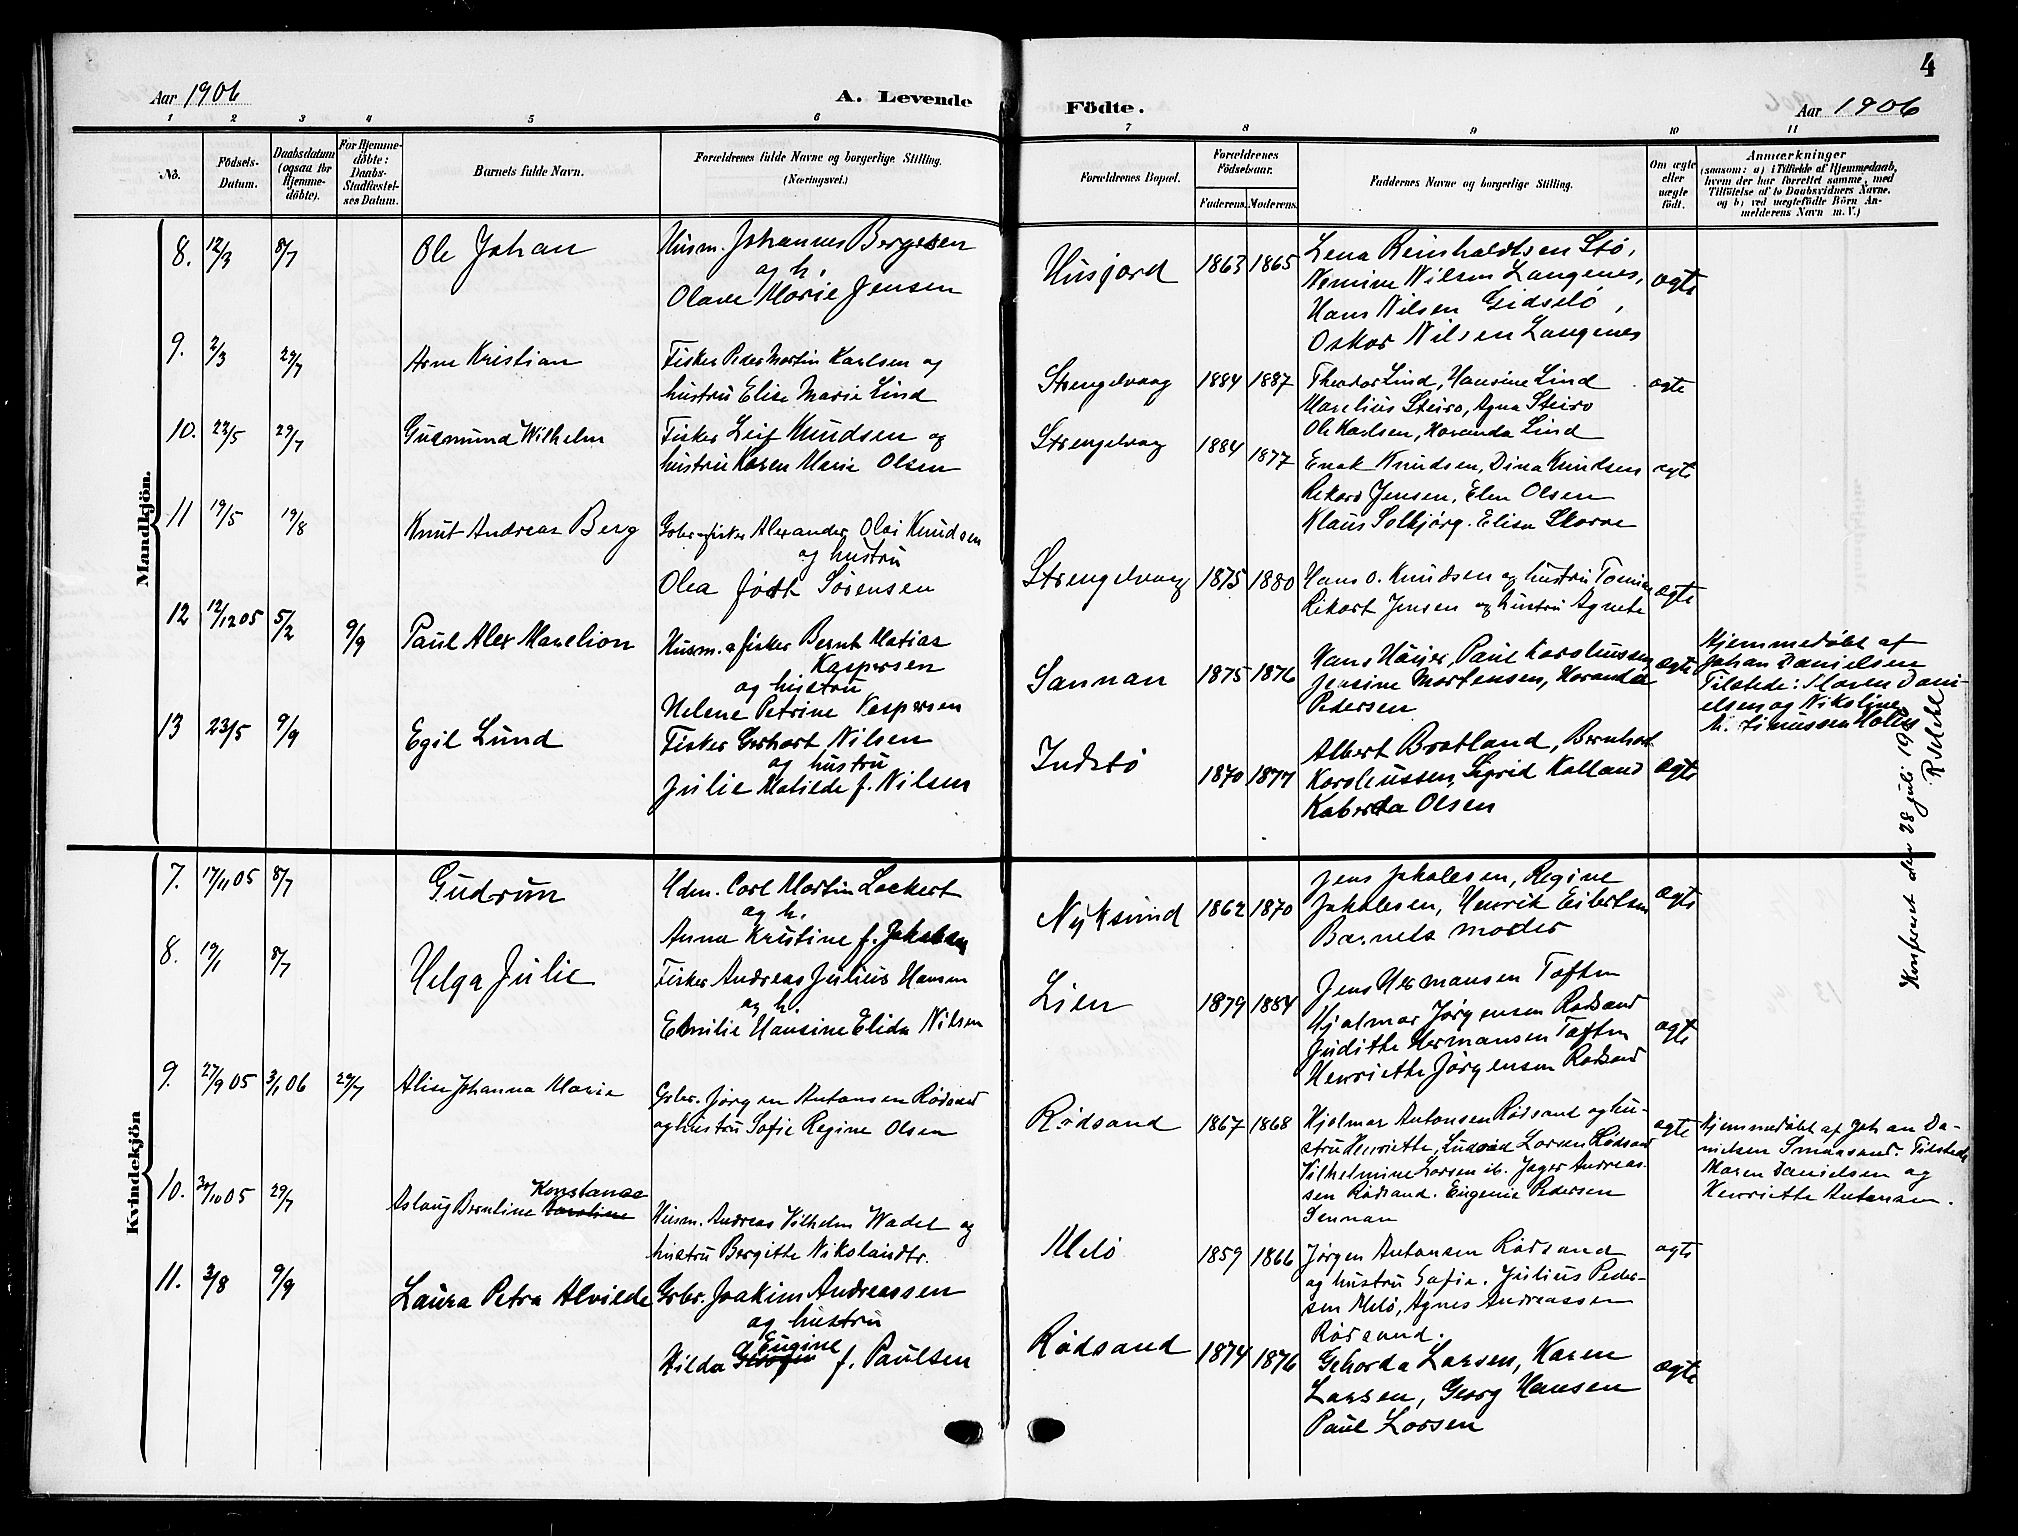 4
Aar 1906
A. Levende Födte.
Aar 1906
1 2 3 4 5 6 7 8 9 10 11
No.
Födsels-Datum.
Daabsdatum (ogsaa for Hjemme-döbte).
For Hjemme-döbte: Daabs-Stadfæstel-ses Datum.
Barnets fulde Navn.
Forældrenes fulde Navne og borgerlige Stilling.
(Næringsvei.)
Forældrenes Bopæl.
Forældrenes Födselsaar.
Faderens. Moderens.
Faddernes Navne og borgerlige Stilling.
Om ægte eller uægte födt.
Anmærkninger
(saasom: a) i Tilfælde af Hjemmedaab,
hvem der har forrettet samme, med
Tilföielse af to Daabsvidners Navne,
og b) ved uægtefödte Börn An-
melderens Navn m. V.)
Mandkjön.
8. 12/3 8/7 Ole Johan
Husm. Johannes Bergesen
og h.
Olave Marie Jensen
Husjord 1863 1865
Lena Reinholdtsen Stø,
Nilsen Langenes,
Hans Nilsen Gidslö,
Oskar Nilsen Langenes
ægte
9. 2/3 29/7 Arne Kristian
Fisker Peder Martin Karlsen og
hustru Elise Marie Lind
Strengelvaag 1884 1887
Theodor Lind, Hansine Lind
Marelius Steiro, Agna Steiro
Ole Karlsen, Haranda Lind
ægte
10. 22/5 29/7 Gudmund Wilhelm
Fisker Leif Knudsen og
hustru Karen Marie Olsen
Strengelvaag 1884 1877
Enok Knudsen, Dina Knudsen
Rikard Jensen, Elen Olsen
Klaus Solbjørg. Elisa Skorve
ægte
11 19/5 19/8 Knut Andreas Berg
Grbr. fisker Alexander Olai Knudsen
og hustru
Olea födt Sørensen
Strengelvaag 1875 1880
Hans O. Knudsen og hustru
Rikart Jensen og hustru Agnete
ægte
12 12/12 05 5/2 9/9 Paul Alex Marelion
Husm. & fisker Bernt Matias
Kaspersen
og hustru
Helene Petrine Kespersen
Sannan 1875 1876
Hans Häyer, Paul Karoliussen,
Jensine Mortensen, Haranda
Pedersen
ægte
Hjemmedøbt af
Johan Danielsen
Tilstede: Maren Dani-
elsen og Nikoline
13 23/5 9/9 Egil Lund
Fisker Gerhart Nilsen
og hustru
Julie Matilde f. Nilsen
Indstø 1870 1877
Albert Bratland, Bernhart
Karoliussen, Sigrid Kalland
Olsen
ægte
Konfereret den 28 juli
Kvindekjön
7. 17/11 05 8/7 Gudrun
Hdm. Carl Martin Lockert
og h.
Anna Kristine f. Jakobsen
Nyksund 1862 1870
Jens Jakobsen, Regine
Jakobsen, Henrik Eilertsen
Barnets moder
ægte
8. 19/1 8/7 Helga Julie
Fisker Andreas Julius Hansen
og h.
Emilie Hansine Elida Nilsen
Lien 1879 1884
Jens Hermansen Toften
Hjalmar Jørgensen Rødsand
Judithe Hermansen Toften
Henriette Jørgensen Rødsand
ægte
9. 27/9 05 3/1 06 29/7 Alise Johanna Marie
Grbr. Jørgen Antonsen Rödsand
og hustru Sofie Regine Olsen
Rødsand 1867 1868
Hjelmar Antonsen Rödsand og hu-
stru Henriette, Ludvid Larsen Rödsand
Vilhelmine Larsen ib. Jager Andreas-
sen Rødsand. Eugenie Pedersen
Sennan
ægte
Hjemmedøbt af Johan Da-
nielsen Smaasund. Tilstede
Maren Danielsen og
Henriette Antonsen.
10. 30/10 05 29/7 Aslaug Bernline Konstanse
Husm. Andreas Vilhelm Wadel og
hustru Bergitte Nikolaidtr.
Melö 1859 1866
Jørgen Antonsen Rödsand
og hustru Sofie. Julius Peder-
sen Melö, Agnes Andreassen
Rödsand.
ægte
11. 3/8 9/9 Laura Petra Alvilde
Grbr. Joakim Andreassen
og hustru
Eugine
Hilda f. Paulsen
Rødsand 1874 1876
Gehorda Larsen, Karen
Larsen, Georg Hansen
Paul Larsen
ægte